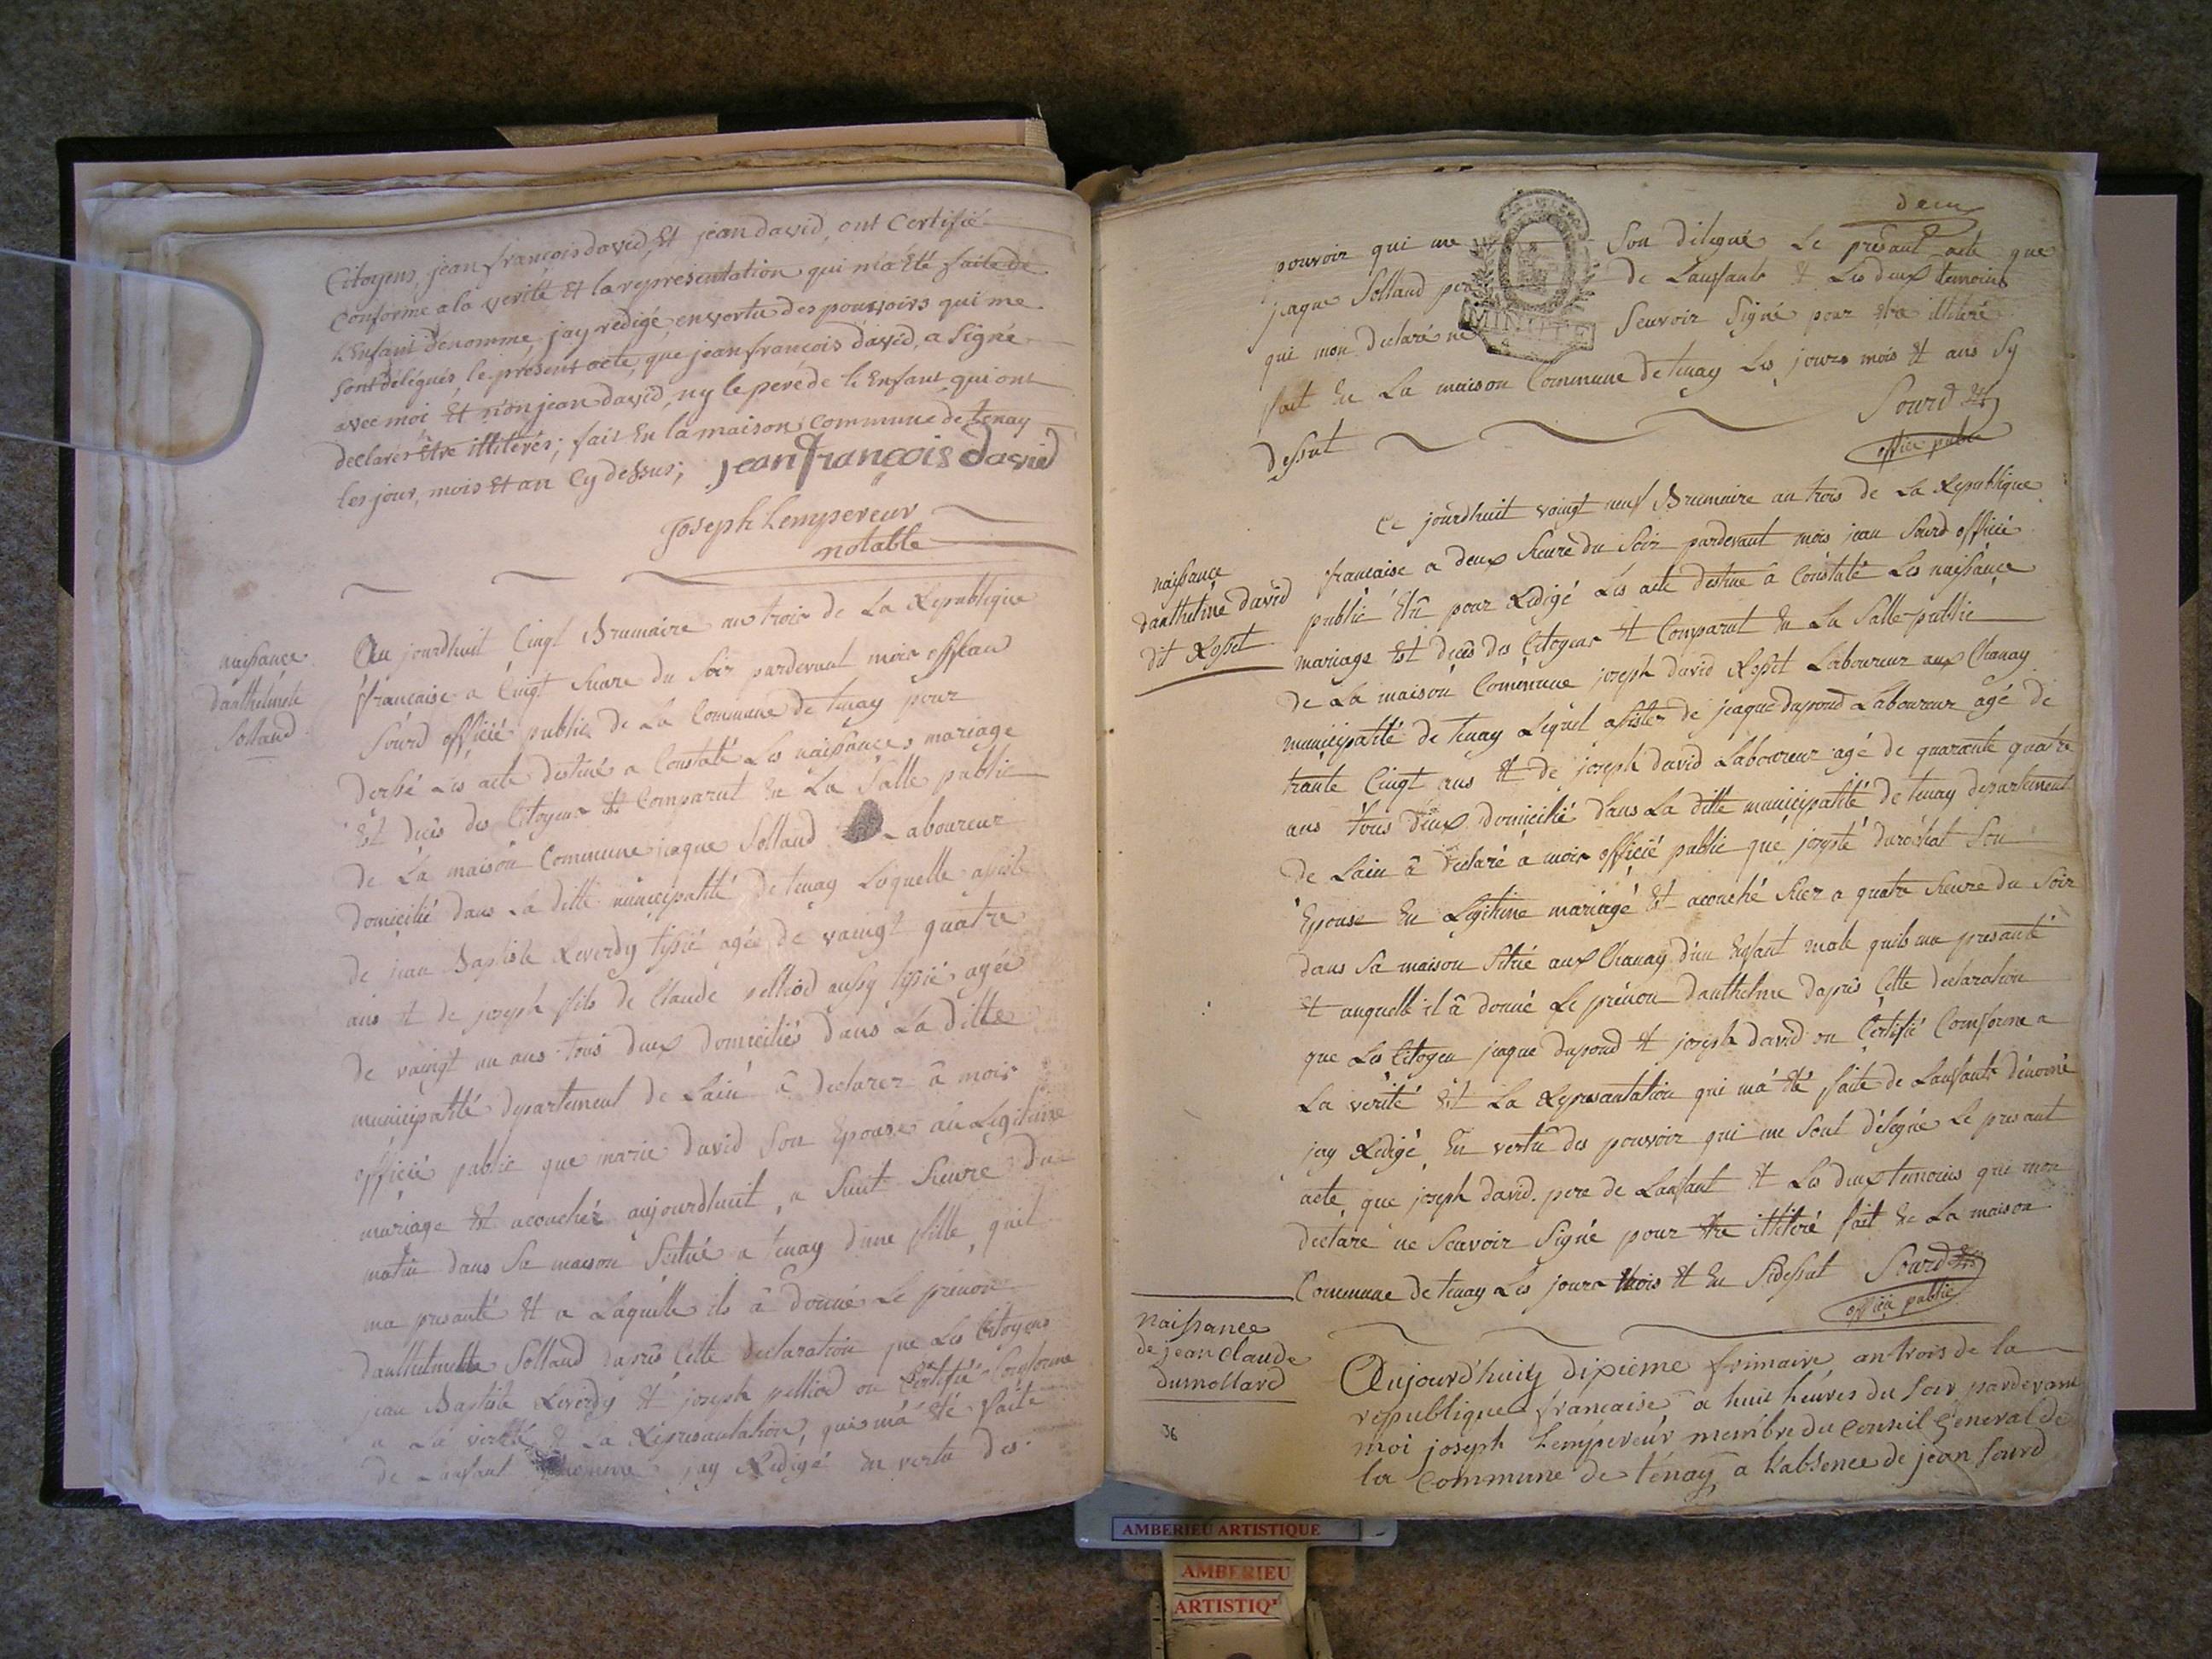 Citoyens, jean françois david, Et jean david, ont Certifié
Conforme a la verité Et la representation qui m'a Eté faite de
L'Enfant denommé. jay redigé, en vertu des pouvoirs qui me
sont délégués, le présent acte, que jean françois david, a Signé
avec moi Et non jean david, ny le peré de l'Enfant qui ont
declarés Etre illiterés; fait En la maison Commune de tenay
les jour, mois Et an Cy dessus; jean françois david
Joseph Lempereur
notable
naissance
danthelmete
Solland
Au jourdhuit Cingt Brumaire an trois de La Republique
française a Cingt heure du Soir pardevant mois
Sourd officié public de La Commune de tenay pour
Les acte destiné a Constaté Les naissances mariage
Est deces des Citoyens Et Comparut En La Salle public
de La maison Commune jaque Solland Laboureur
domicilié dans La ditte municipalité de tenay Loquelle
de jean Baptiste Reverdy tissié agée de vaingt quatre
ans Et de joseph fils de Claude pelliod aussy tissié agée
de vaingt un ans tous deux domiciliés dans La ditte
municipalité departement de Lain â declarez â mois
officié public que marie david Son Epouse an Legitime
mariage Est acouchéz aujourdhuit a huit heure du
matin dans Sa maison Scitué a tenay dune fille quil
ma presanté Et a Laquelle ils â donné Le prénon
danthelmette Solland dapres Cette declaration que Les Citoyens
jean Baptiste Reverdy Et joseph pelliod on Certifié Conforme
a La verité Et La Representation, qui má Eté faite
de Lanfant jay Redigé En vertu des
deux
pouvoir qui me Son délegué Le présant acte que
jaque Solland de Lanfant Et Les deux temoins
qui mon declaré ne Scavoir Signé pour Etre illiteré
fait En La maison Commune de tenay Les jours mois Et ans Sy
dessut Sourd
officié public
naissance
danthelme david
dit Rosset
Ce jourdhuit vaingt neuf Brumaire an trois de La Republique
francaise a deux heure du Soir pardevant mois jean Sourd officié
public Elû pour Redigé Les acte destiné a Constaté Les naissance
mariage Est deces des Citoyens Et Comparut En La Salle public
de La maison Commune joseph david Rosset Laboureur aux Chanay
municipalité de tenay Lequel assister de jaque dupond Laboureur agé de
trante Cingt ans Et de joseph david Laboureur agé de quarante quatre
ans tous deux domicilié dans La ditte municipalité de tenay departement
de Lain â declaré a mois officié public que josepte durochat Son
Epouse En Legitime mariage Est acouché hier a quatre heure du Soir
dans Sa maison Situé aux Chanay d'un Enfant male quils ma presanté
Et auquelle il â donné Le prénon danthelme dapres Cette declaration
que Les Citoyen jaque dupond Et joseph david on Certifié Conforme a
La vérité Et La Represantation qui má Eté faite de Lanfant dénomé
jay Redigé En vertu des pouvoir qui me Sont délegué Le presant
acte que joseph david pere de Lanfant Et Les deux temoins qui mon
déclaré ne Scavoir Signé pour Etre illiteré fait En La maison
Commune de tenay Les jours mois Et En Sidessut Sourd
officié public
Naissance
de jean Claude
dumollard
36
Aujourd'huy dixieme frimaire an trois de la
republique française a huit héures du Soir pardevant
moi joseph Lempereur membre du Conseil General de
la Commune de tenay a L'absence de jean Sourd
MINUTE
AMBERIEU ARTISTIQUE
AMBERIEU
ARTISTIQ